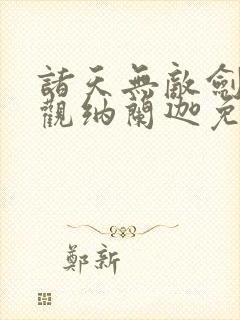 諸天無敵劍
觀納蘭迦免
鄭新